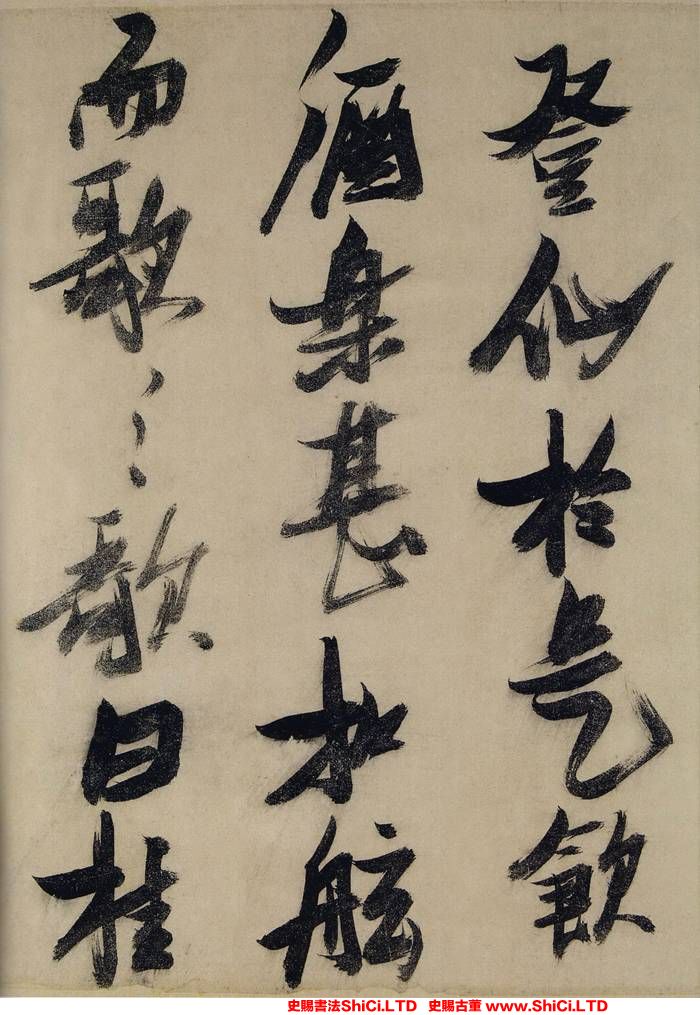 登仙於是飲
酒樂甚扣舷
而歌之歌曰桂
史賜書法ShiCi.LTD 史賜古董 www.ShiCi.LTD